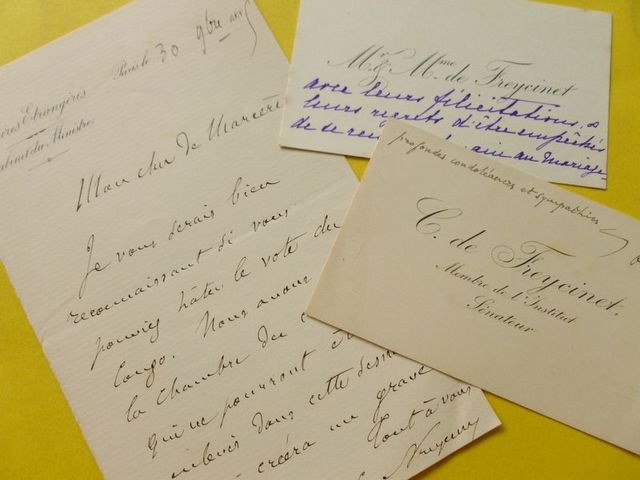 ères Etrangères
Cabinet du Ministre
Paris le 30 9bre 188
Mon cher de Marcère
Je vous serais bien
reconnaissant si vous
pouviez hâter le vote du
Congo. Nous avons
la Chambre des
qui ne pourront
dans cette
créera un grave
Tout à vous
Mr & Mme de Freycinet
avec leurs félicitations &
leurs regrets d'être empêchés
de se au Mariage
profondes condoléances et sympathies
C. de Freycinet.
Membre de l'Institut
Sénateur